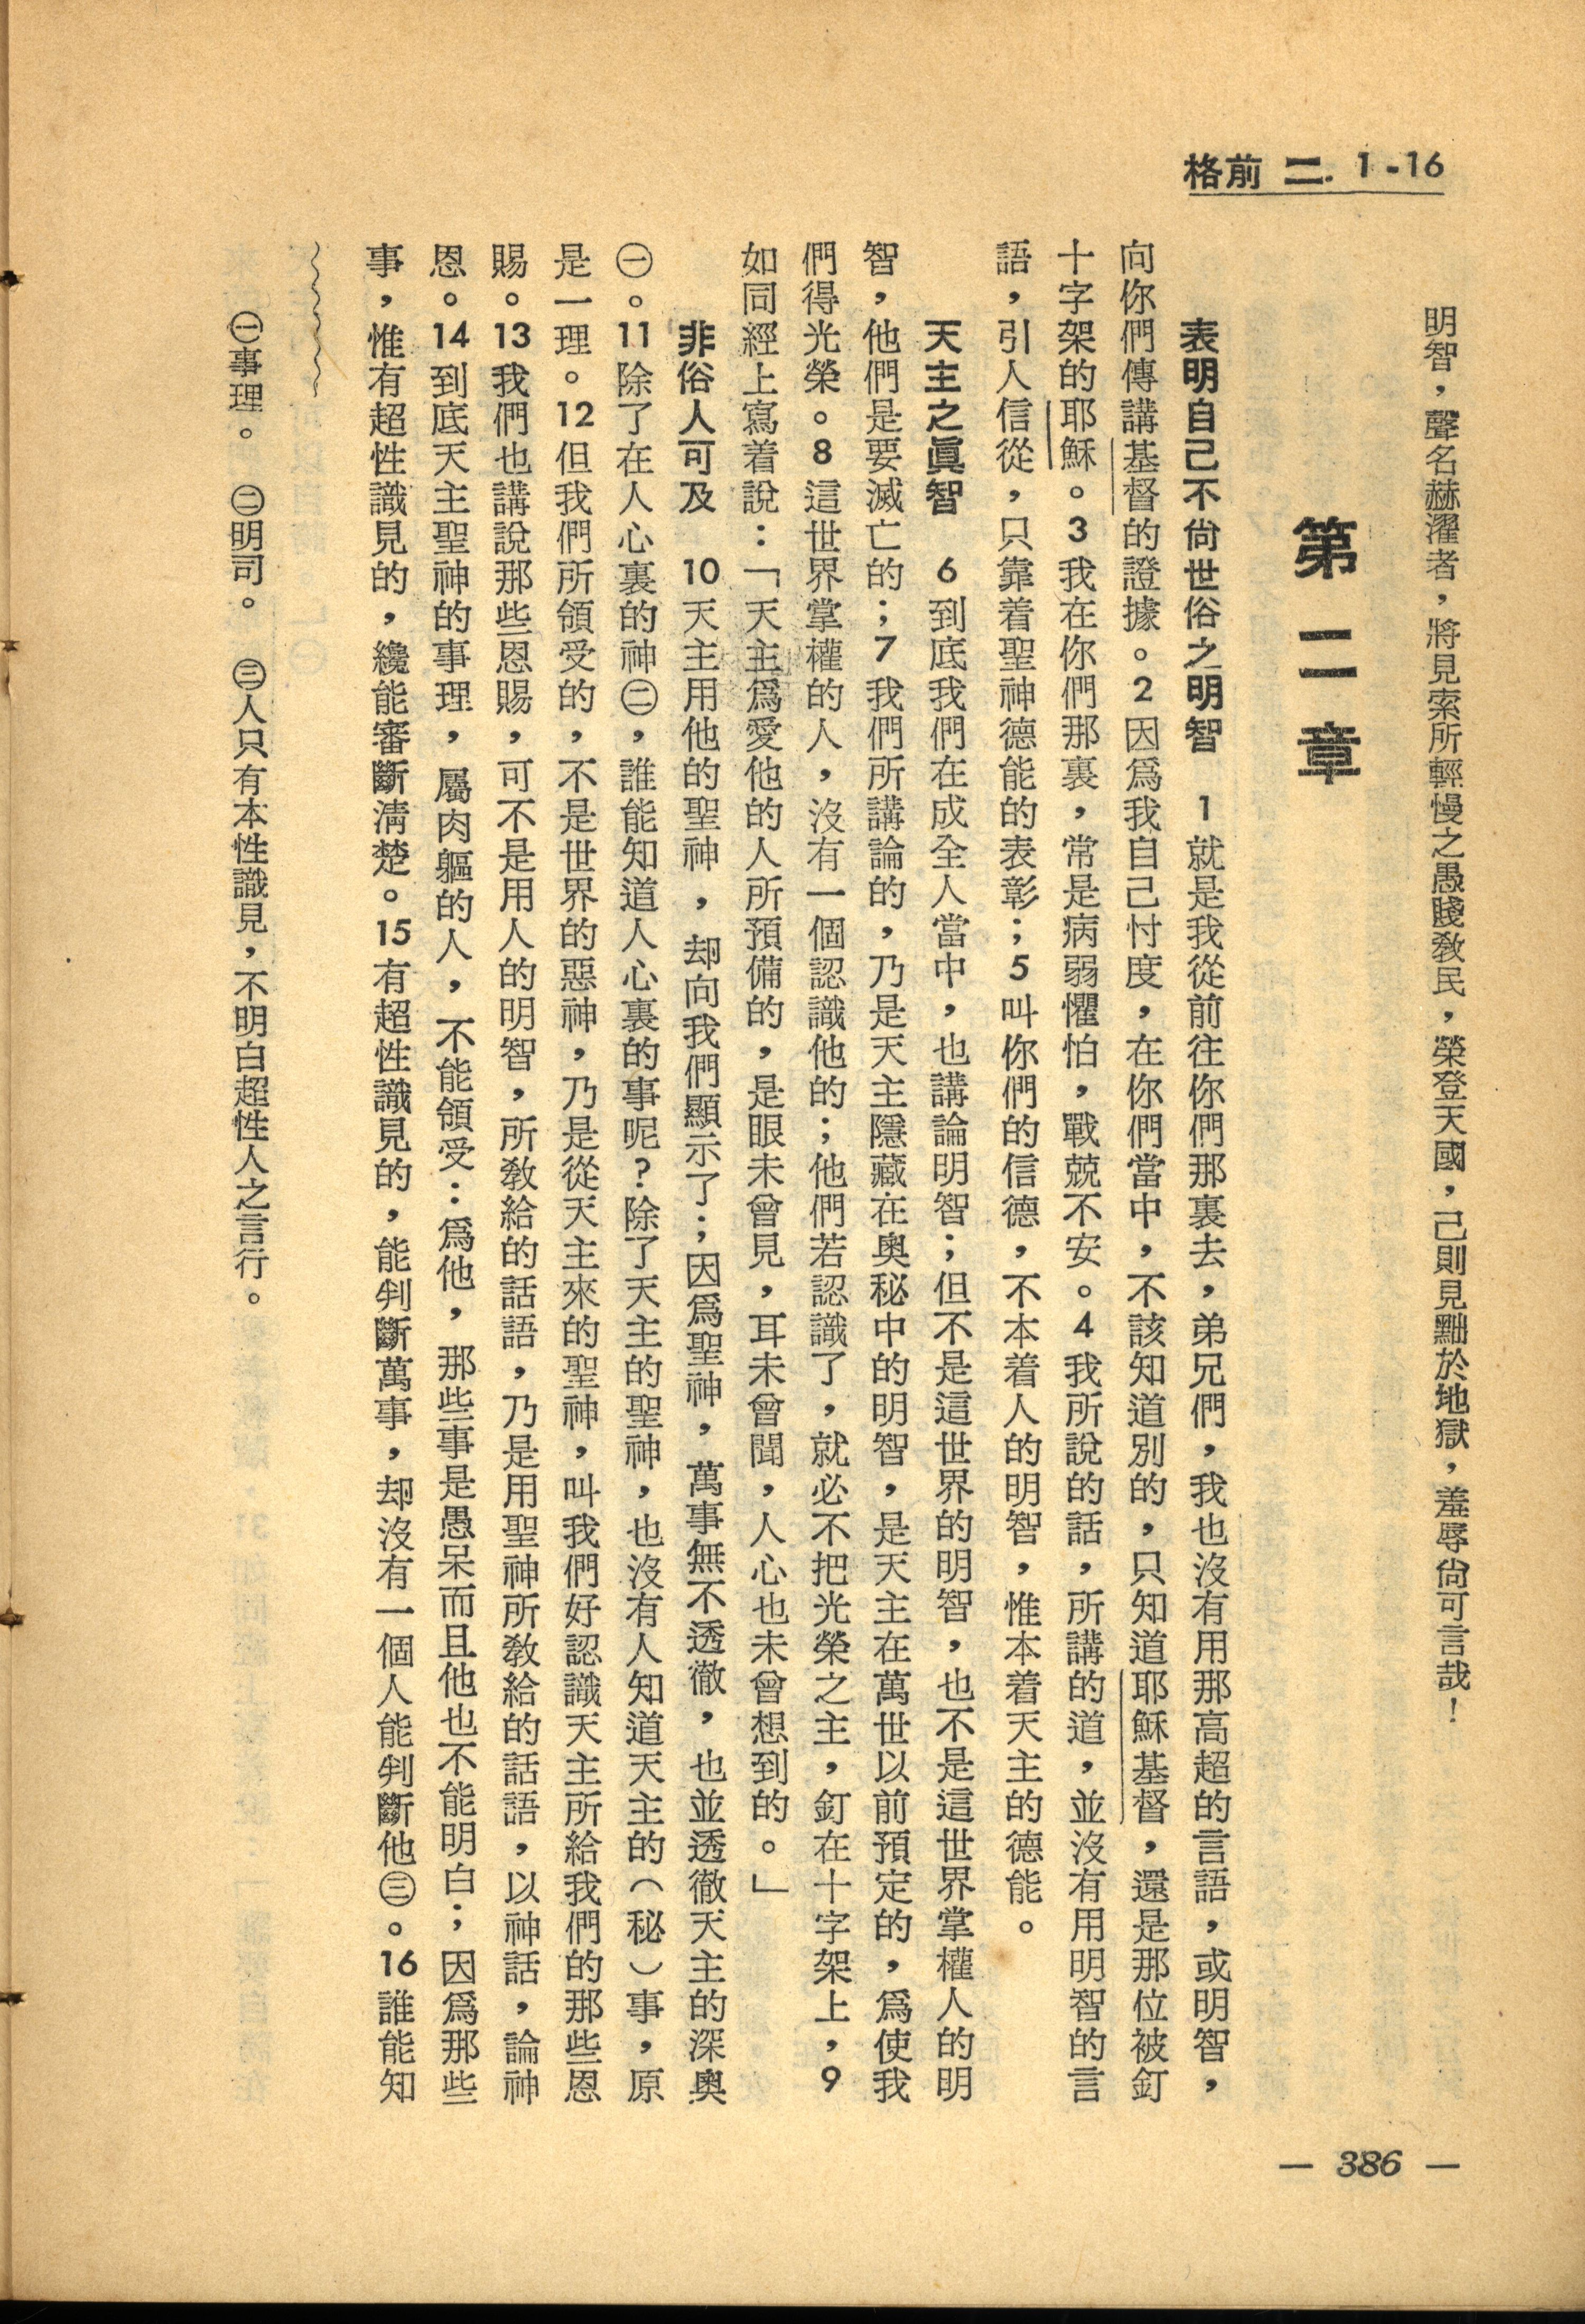 格前 二. 1-16
明智，聲名赫濯者，將見索所輕慢之愚賤教民，榮登天國，己則見黜於地獄，羞辱尙可言哉！
第二章
表明自己不尙世俗之明智　1就是我從前往你們那裏去，弟兄們，我也沒有用那高超的言語，或明智，
向你們傳講基督的證據。2因爲我自己忖度，在你們當中，不該知道別的，只知道耶穌基督，還是那位被釘
十字架的耶穌。3我在你們那裏，常是病弱懼怕，戰兢不安。4我所說的話，所講的道，並沒有用明智的言
語，引人信從，只靠着聖神德能的表彰；5叫你們的信德，不本着人的明智，惟本着天主的德能。
天主之眞智　6到底我們在成全人當中，也講論明智；但不是這世界的明智，也不是這世界掌權人的明
智，他們是要滅亡的；7我們所講論的，乃是天主隱藏在奧秘中的明智，是天主在萬世以前預定的，爲使我
們得光榮。8這世界掌權的人，沒有一個認識他的；他們若認識了，就必不把光榮之主，釘在十字架上，9
如同經上寫着說：「天主爲愛他的人所預備的，是眼未曾見，耳未曾聞，人心也未曾想到的。」
非俗人可及　10天主用他的聖神，却向我們顯示了；因爲聖神，萬事無不透徹，也並透徹天主的深奧
㊀。11除了在人心裏的神㊁，誰能知道人心裏的事呢？除了天主的聖神，也沒有人知道天主的（秘）事，原
是一理。12但我們所領受的，不是世界的惡神，乃是從天主來的聖神，叫我們好認識天主所給我們的那些恩
賜。13我們也講說那些恩賜，可不是用人的明智，所敎給的話語，乃是用聖神所敎給的話語，以神話，論神
恩。14到底天主聖神的事理，屬肉軀的人，不能領受：爲他，那些事是愚呆而且他也不能明白；因爲那些
事，惟有超性識見的，纔能審斷淸楚。15有超性識見的，能判斷萬事，却沒有一個人能判斷他㊂。16誰能知
㊀事理。　㊁明司。　㊂人只有本性識見，不明白超性人之言行。
— 386 —